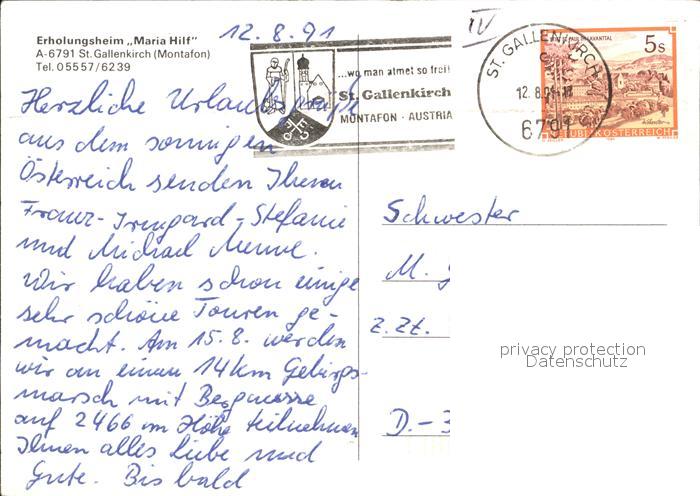 12.8.91
IV
Erholungsheim „Maria Hilf"
A-6791 St. Gallenkirch (Montafon)
Tel. 05557/6239
...wo man atmet so frei!
St. Gallenkirch
MONTAFON · AUSTRIA
ST. GALLENKIRCH
12.8.91-18
6791
5s
REPUBLIK ÖSTERREICH
Herzliche Urlaubsgrüße
aus dem sonnigen
Österreich senden Ihnen
Franz-Irmgard-Stefanie
und Michael
Wir haben schon einige
sehr schöne Touren ge-
macht. Am 15.8. werden
wir an einem 14km Gebirgs-
marsch mit Bergmesse
auf 2466 m Höhe teilnehmen
Ihnen alles liebe und
Gute. Bis bald
Schwester
M.
z.Zt.
D.-3
privacy protection
Datenschutz